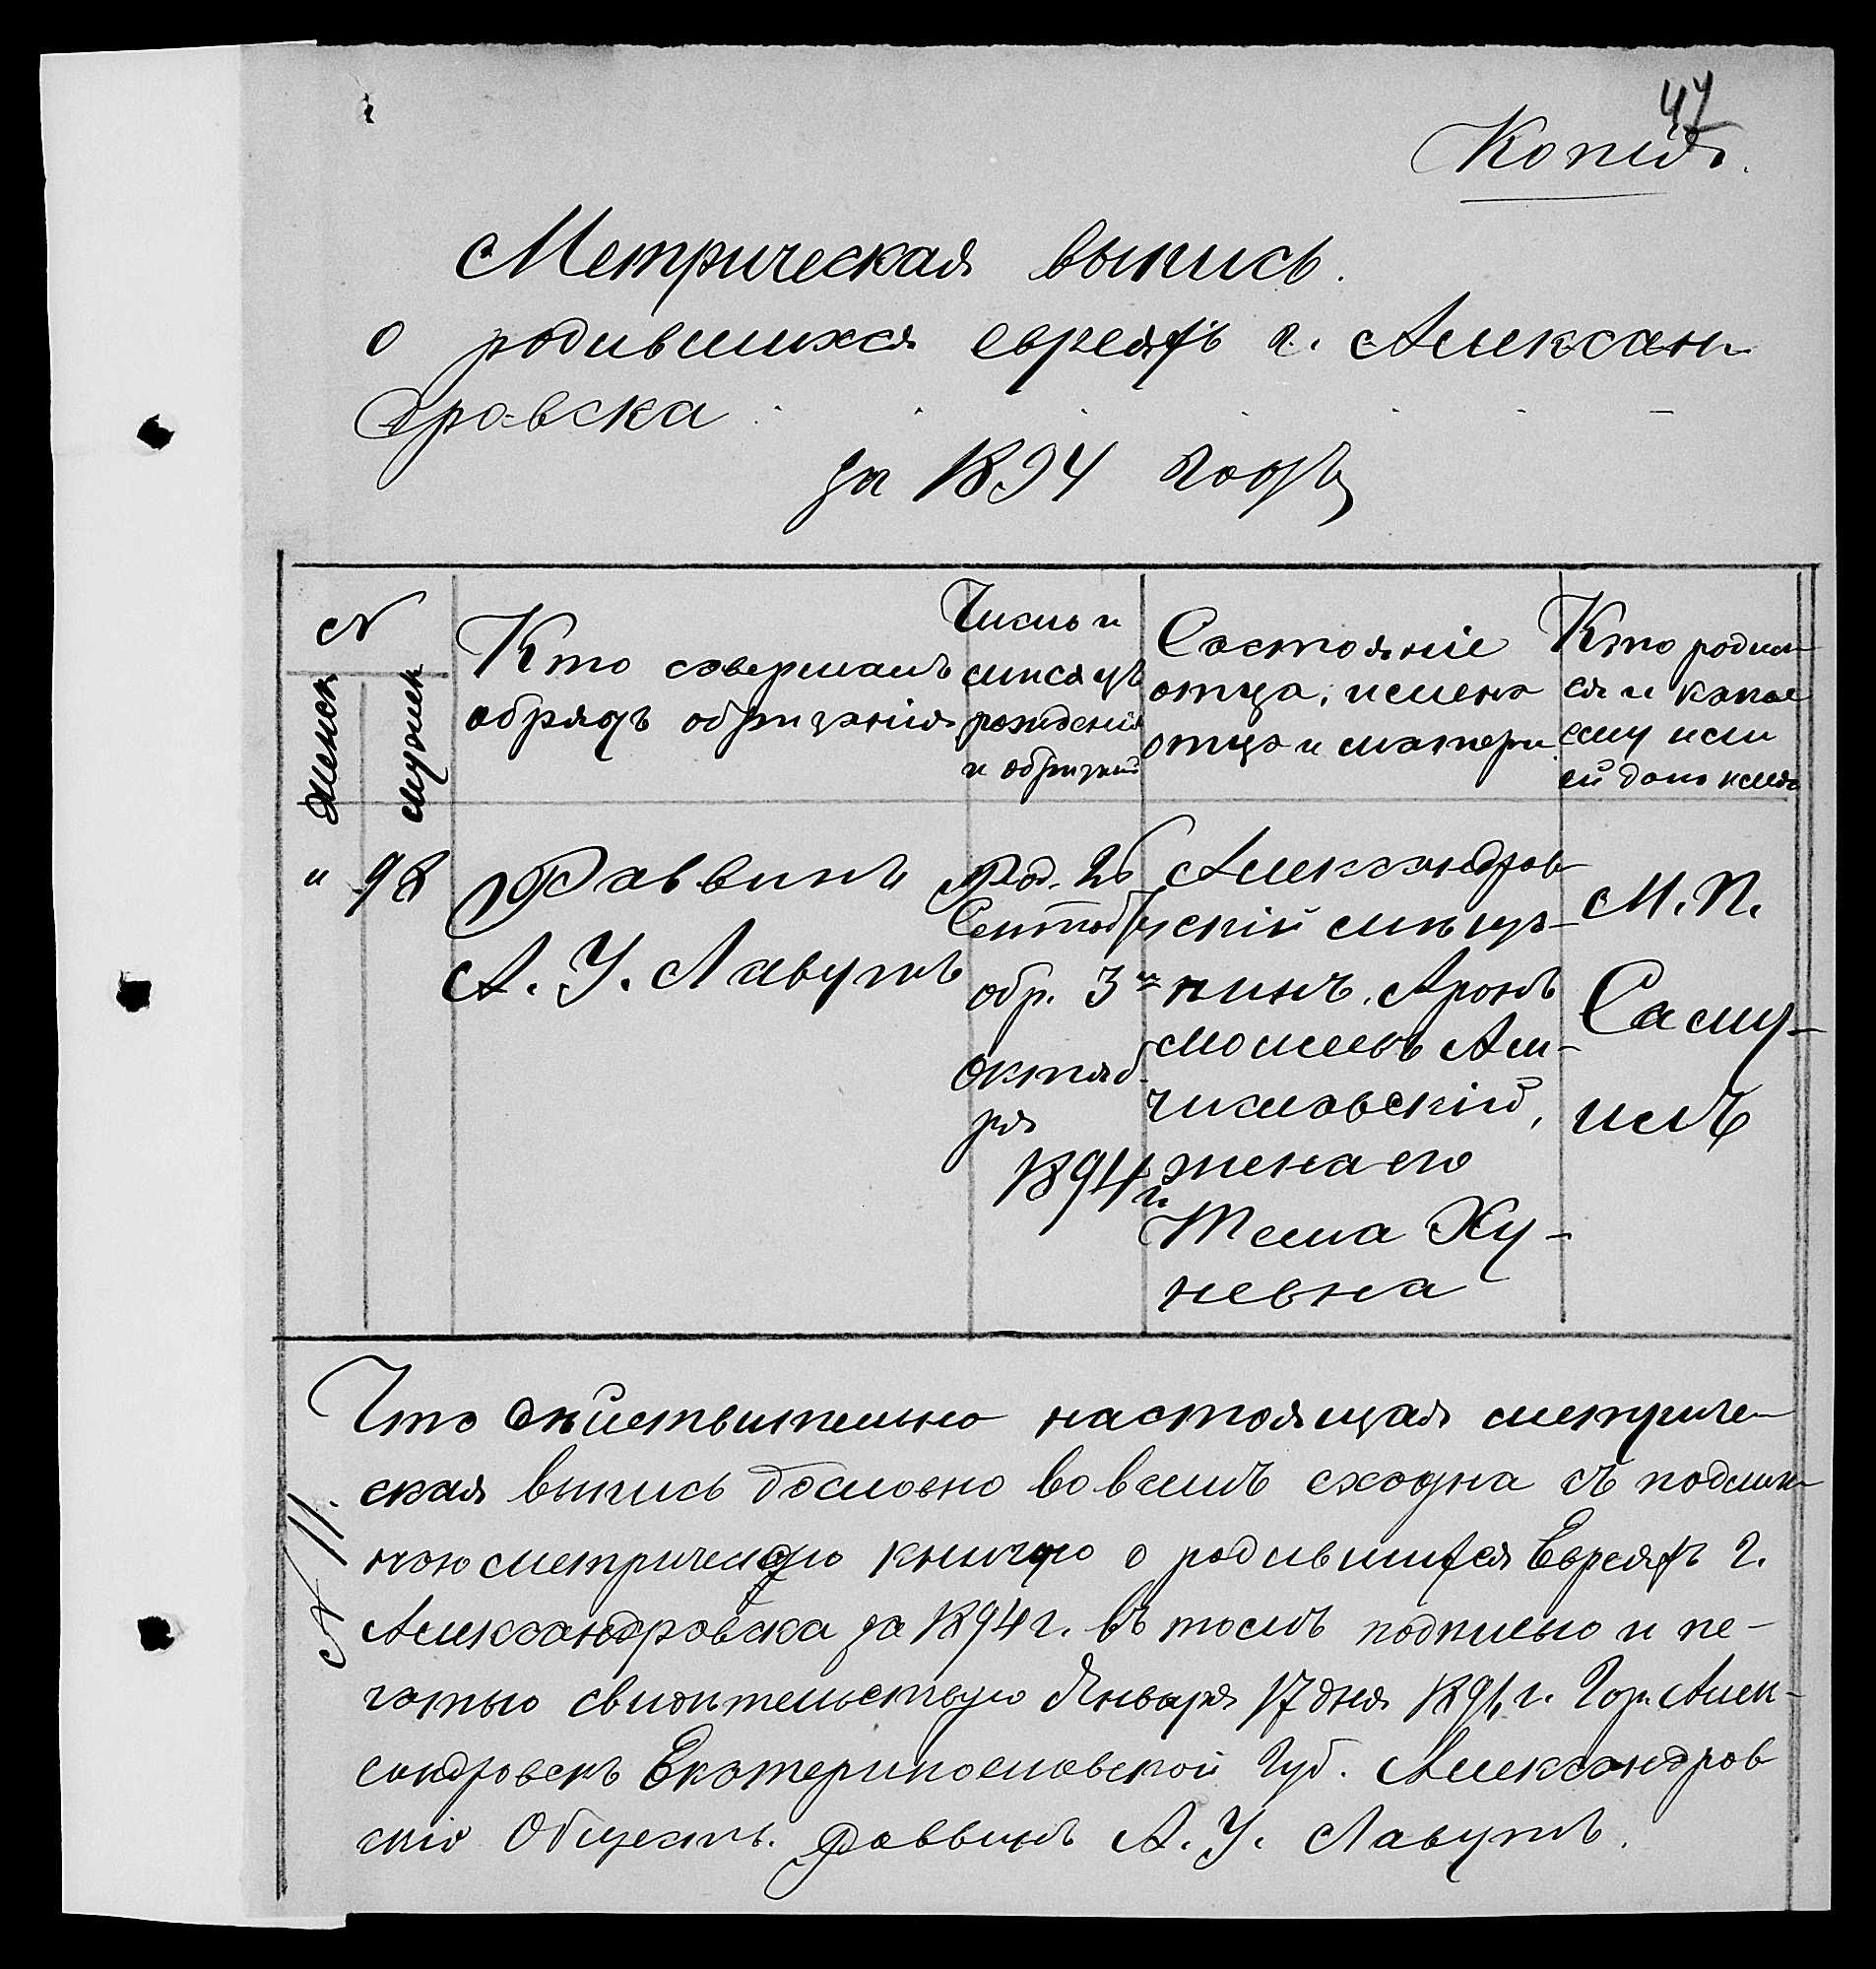 47
Копія.
Метрическая выпись.
о родившихся евреяхъ г. Алексан
дровска
за 1894 годъ
№
Женск
мужск
Кто совершалъ
обрядъ обрѣзанія
Число и
мѣсяцъ
рожденія
и обрѣзанія
Состояніе
отца, имена
отца и матери
Кто родил
ся и какое
ему или
ей дано имя
" 98
Раввинъ
А. У. Лавутъ
Род. 26
Сентяб
обр. 3
октяб
ря
1894 г.
Александров
скій мѣща-
нинъ, Аронъ
Мошеевъ
жена его
Тема Ху-
невна
М. П.
Саму-
илъ
Что дѣйствительно настоящая метриче-
ская выпись дословно во всемъ сходна съ подлин
ною метрическую книгою о родившихся Евреяхъ г.
Александровска за 1894 г. въ томъ подписью и пе-
чатью свидѣтельствую Января 17 дня г. Гор. Алек-
сандровскъ Екатеринославской Губ. Александров
скій Обществ. раввинъ А. У. Лавутъ.
№ 11.